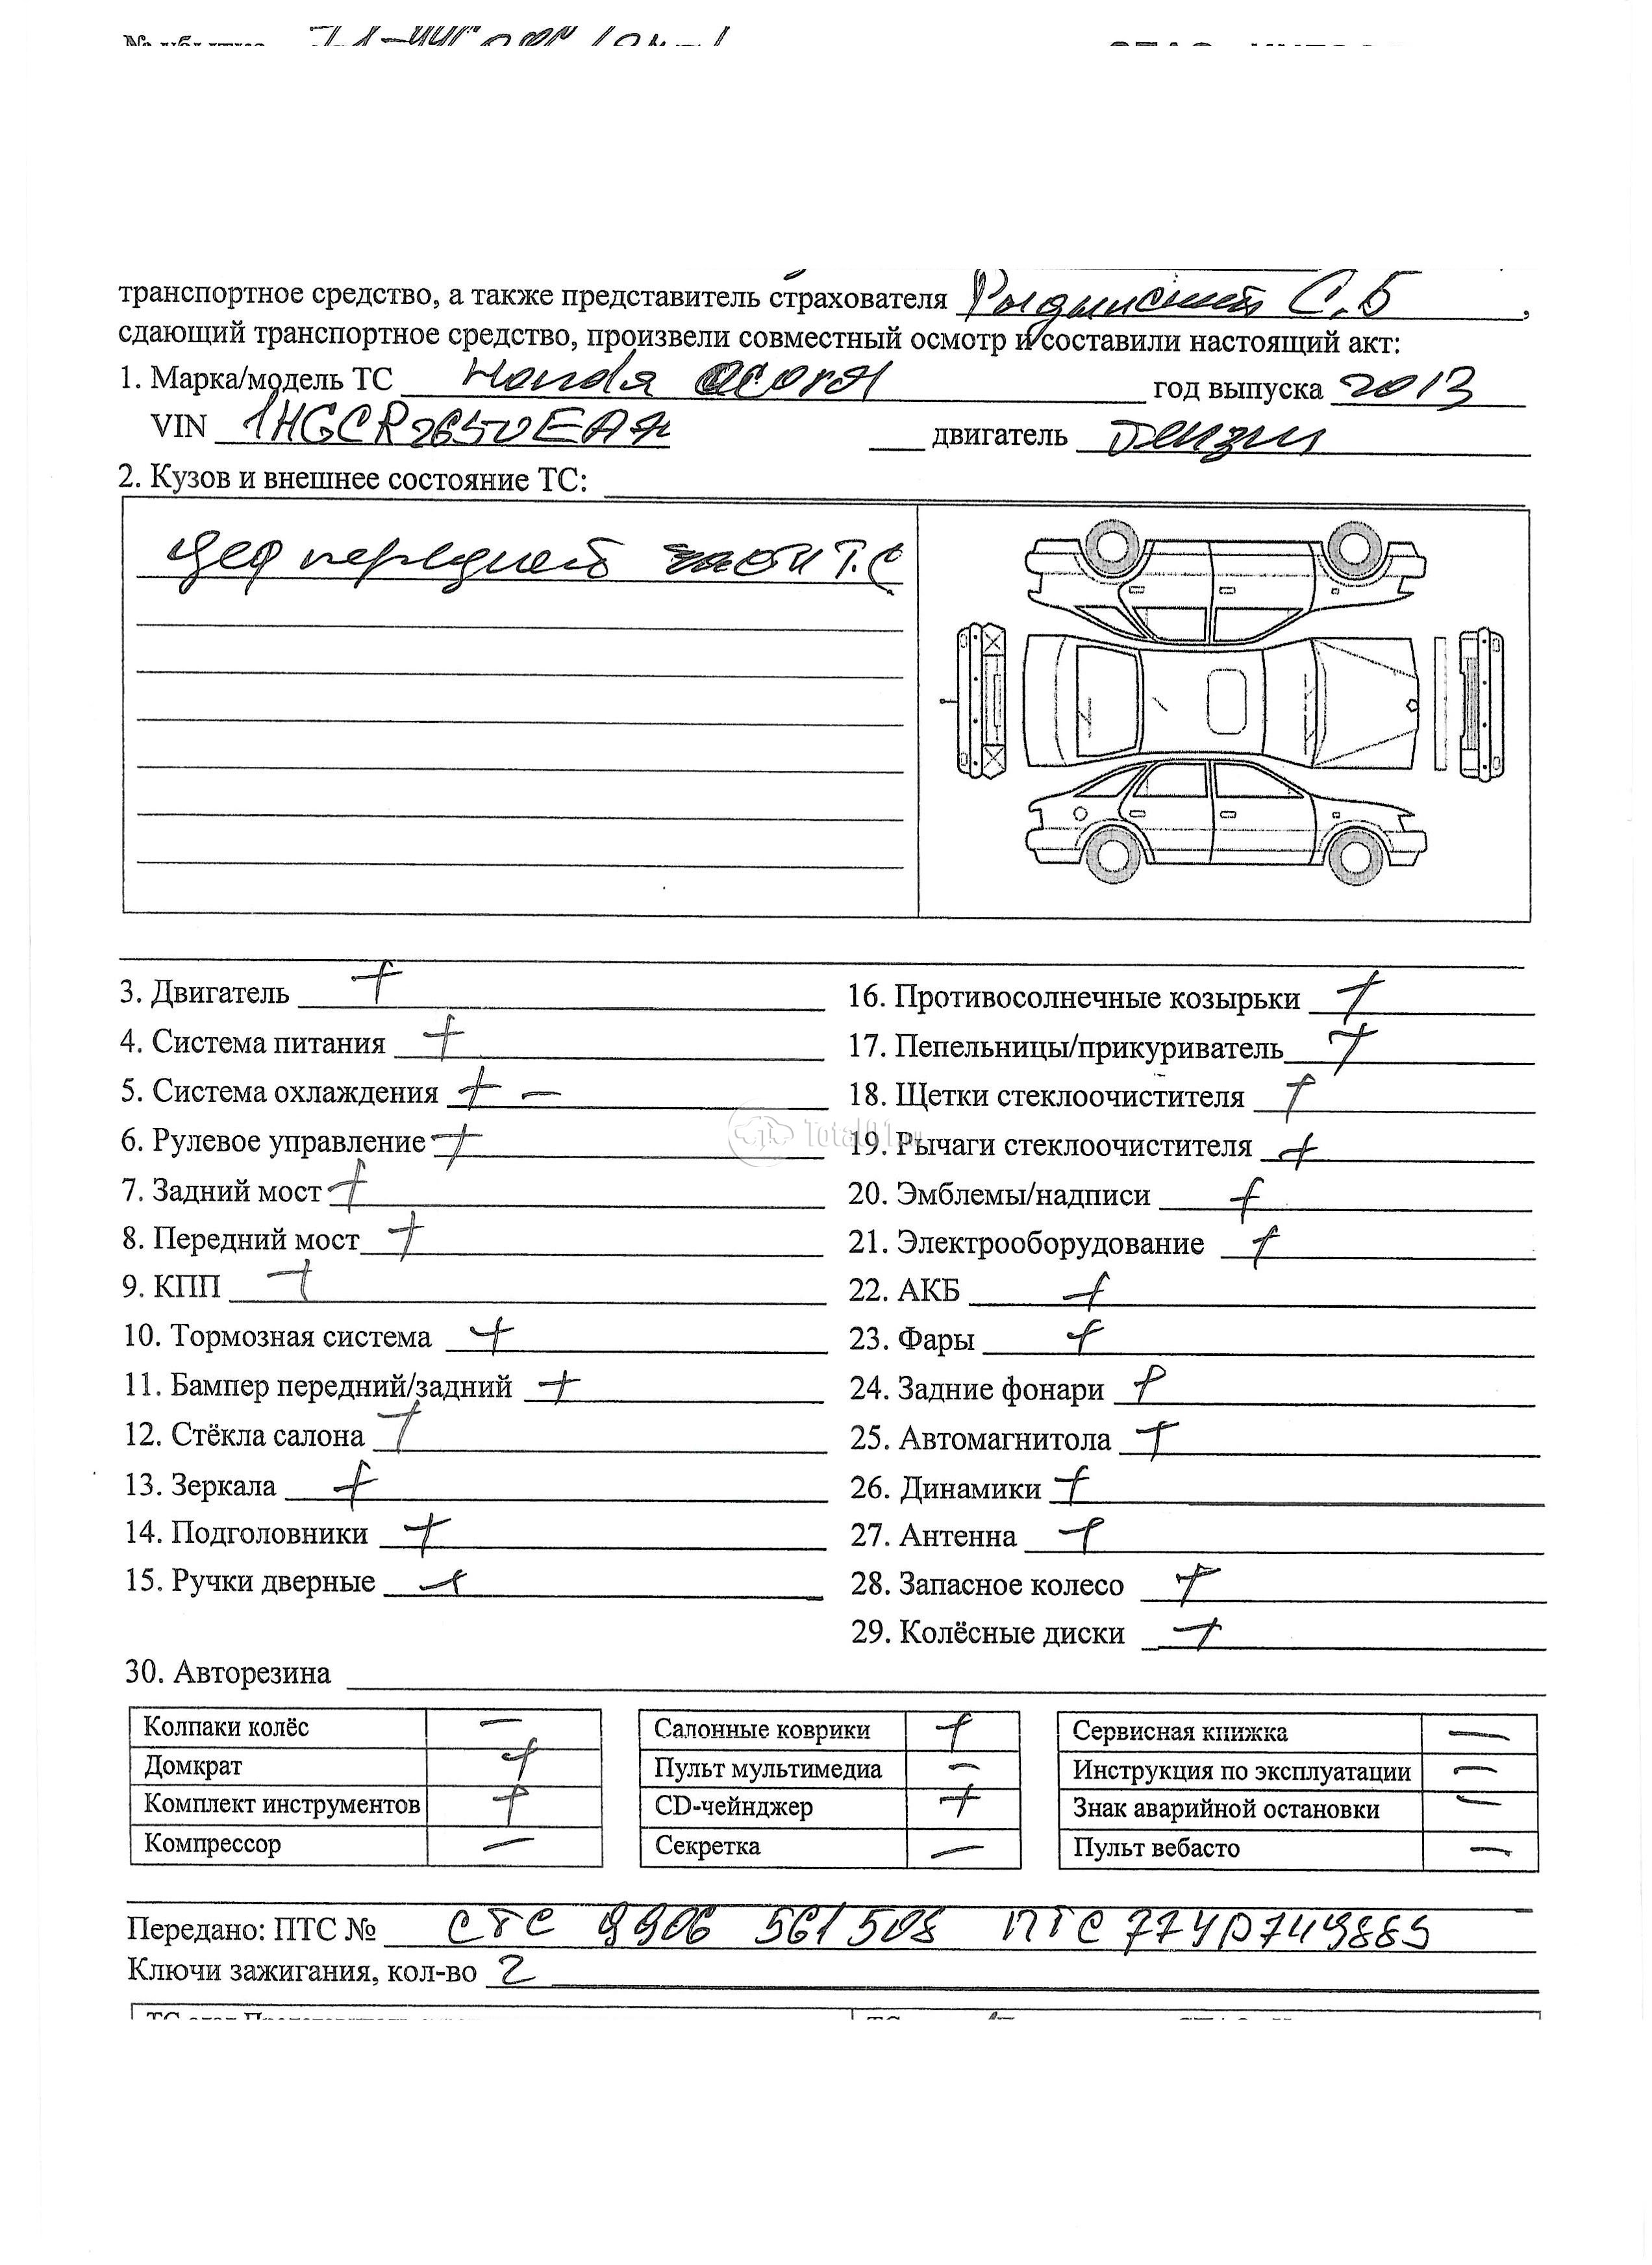 транспортное средство, а также представитель страхователя С.Б ,
сдающий транспортное средство, произвели совместный осмотр и составили настоящий акт:
1. Марка/модель ТС Honda год выпуска 2013
VIN двигатель бензин
2. Кузов и внешнее состояние ТС:
деф передней части Т.С
3. Двигатель +
4. Система питания +
5. Система охлаждения + –
6. Рулевое управление +
7. Задний мост +
8. Передний мост +
9. КПП +
10. Тормозная система +
11. Бампер передний/задний +
12. Стёкла салона +
13. Зеркала +
14. Подголовники +
15. Ручки дверные +
16. Противосолнечные козырьки +
17. Пепельницы/прикуриватель +
18. Щетки стеклоочистителя +
19. Рычаги стеклоочистителя +
20. Эмблемы/надписи +
21. Электрооборудование +
22. АКБ +
23. Фары +
24. Задние фонари +
25. Автомагнитола +
26. Динамики +
27. Антенна +
28. Запасное колесо +
29. Колёсные диски +
30. Авторезина
Колпаки колёс –
Домкрат +
Комплект инструментов +
Компрессор –
Салонные коврики +
Пульт мультимедиа –
CD-чейнджер +
Секретка –
Сервисная книжка –
Инструкция по эксплуатации –
Знак аварийной остановки –
Пульт вебасто –
Передано: ПТС № СТС 9906 561508 ПТС 77УО749889
Ключи зажигания, кол-во 2
Total01.ru